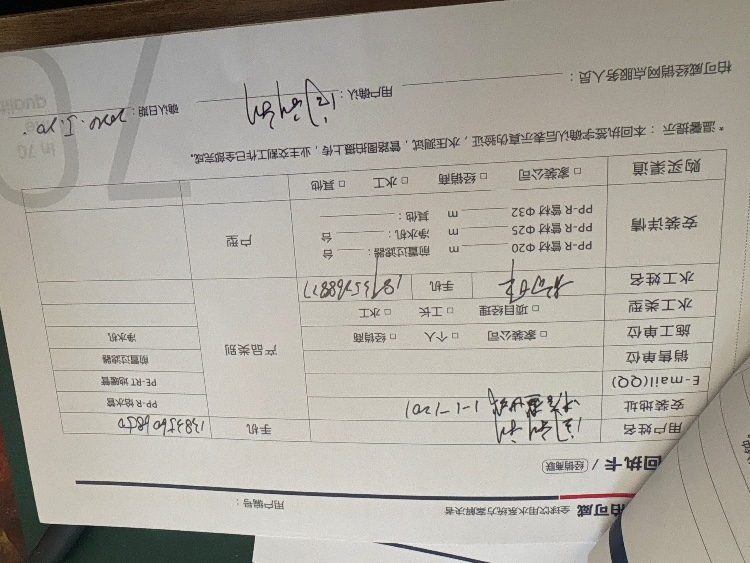 柏可威 全球饮用水系统方案解决者 用户编号：
回执卡 / 经销商联
用户姓名 手机
安装地址 1-1-1201
E-mail(QQ)
销售单位
施工单位 □ 家装公司 □ 个人 □ 经销商
水工类型 □ 项目经理 □ 工长 □ 水工
水工姓名 手机
产品类别
PP-R 给水管
PE-RT 地暖管
前置过滤器
净水机
安装详情
PP-R 管材 Φ20 m 前置过滤器： 台
PP-R 管材 Φ25 m 净水机： 台
PP-R 管材 Φ32 m 其他：
户型
购买渠道 □ 家装公司 □ 经销商 □ 水工 □ 其他
* 温馨提示：本回执签字确认后表示真伪验证，水压测试，管路图拍摄上传，业主交割工作已全部完成。
柏可威经销网点服务人员： 用户确认： 确认日期：
70
quality
in 70